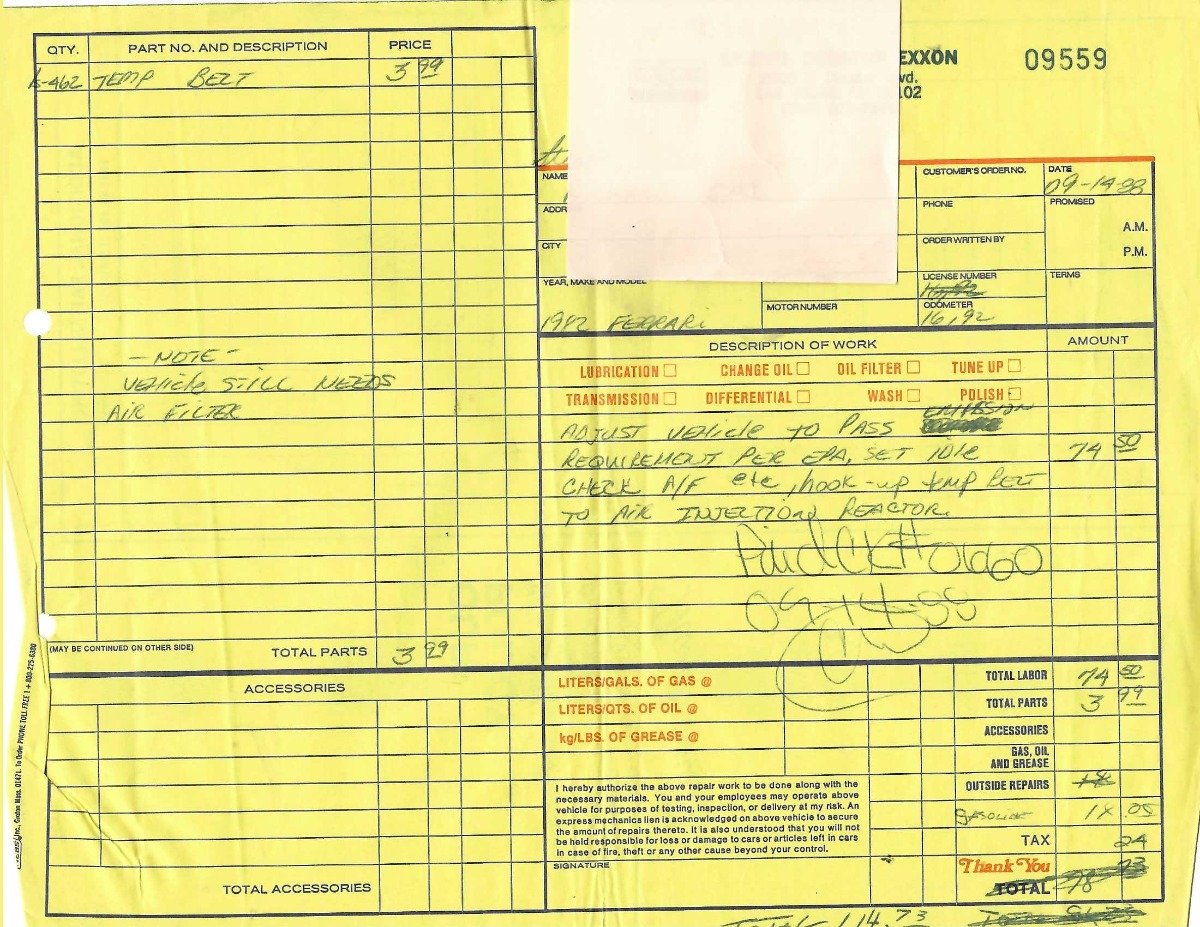 QTY. PART NO. AND DESCRIPTION PRICE
K-462 TEMP BELT 3 99
- NOTE -
VEHICLE STILL NEEDS
AIR FILTER
(MAY BE CONTINUED ON OTHER SIDE) TOTAL PARTS 3 99
ACCESSORIES
TOTAL ACCESSORIES
To Order PHONE TOLL FREE 1 + 800-225-6380
EXXON 09559
vd.
102
NAME CUSTOMER'S ORDER NO. DATE
09-14-88
ADDR PHONE PROMISED
A.M.
CITY ORDER WRITTEN BY P.M.
YEAR, MAKE AND MODEL LICENSE NUMBER TERMS
MOTOR NUMBER ODOMETER
1982 FERRARI 16,92
DESCRIPTION OF WORK AMOUNT
LUBRICATION CHANGE OIL OIL FILTER TUNE UP
TRANSMISSION DIFFERENTIAL WASH POLISH
ADJUST VEHICLE TO PASS EMISSION
REQUIREMENT PER EPA, SET IDLE 74 50
CHECK A/F etc, hook-up temp BELT
TO AIR INJECTION REACTOR.
Paid CK#
09-14-88
LITERS/GALS. OF GAS @ TOTAL LABOR 74 50
LITERS/QTS. OF OIL @ TOTAL PARTS 3 99
kg/LBS. OF GREASE @ ACCESSORIES
GAS, OIL
AND GREASE
OUTSIDE REPAIRS
GASOLINE 18.05
TAX 24
I hereby authorize the above repair work to be done along with the
necessary materials. You and your employees may operate above
vehicle for purposes of testing, inspection, or delivery at my risk. An
express mechanics lien is acknowledged on above vehicle to secure
the amount of repairs thereto. It is also understood that you will not
be held responsible for loss or damage to cars or articles left in cars
in case of fire, theft or any other cause beyond your control.
SIGNATURE
Thank You
TOTAL 78 73
Total 114.73